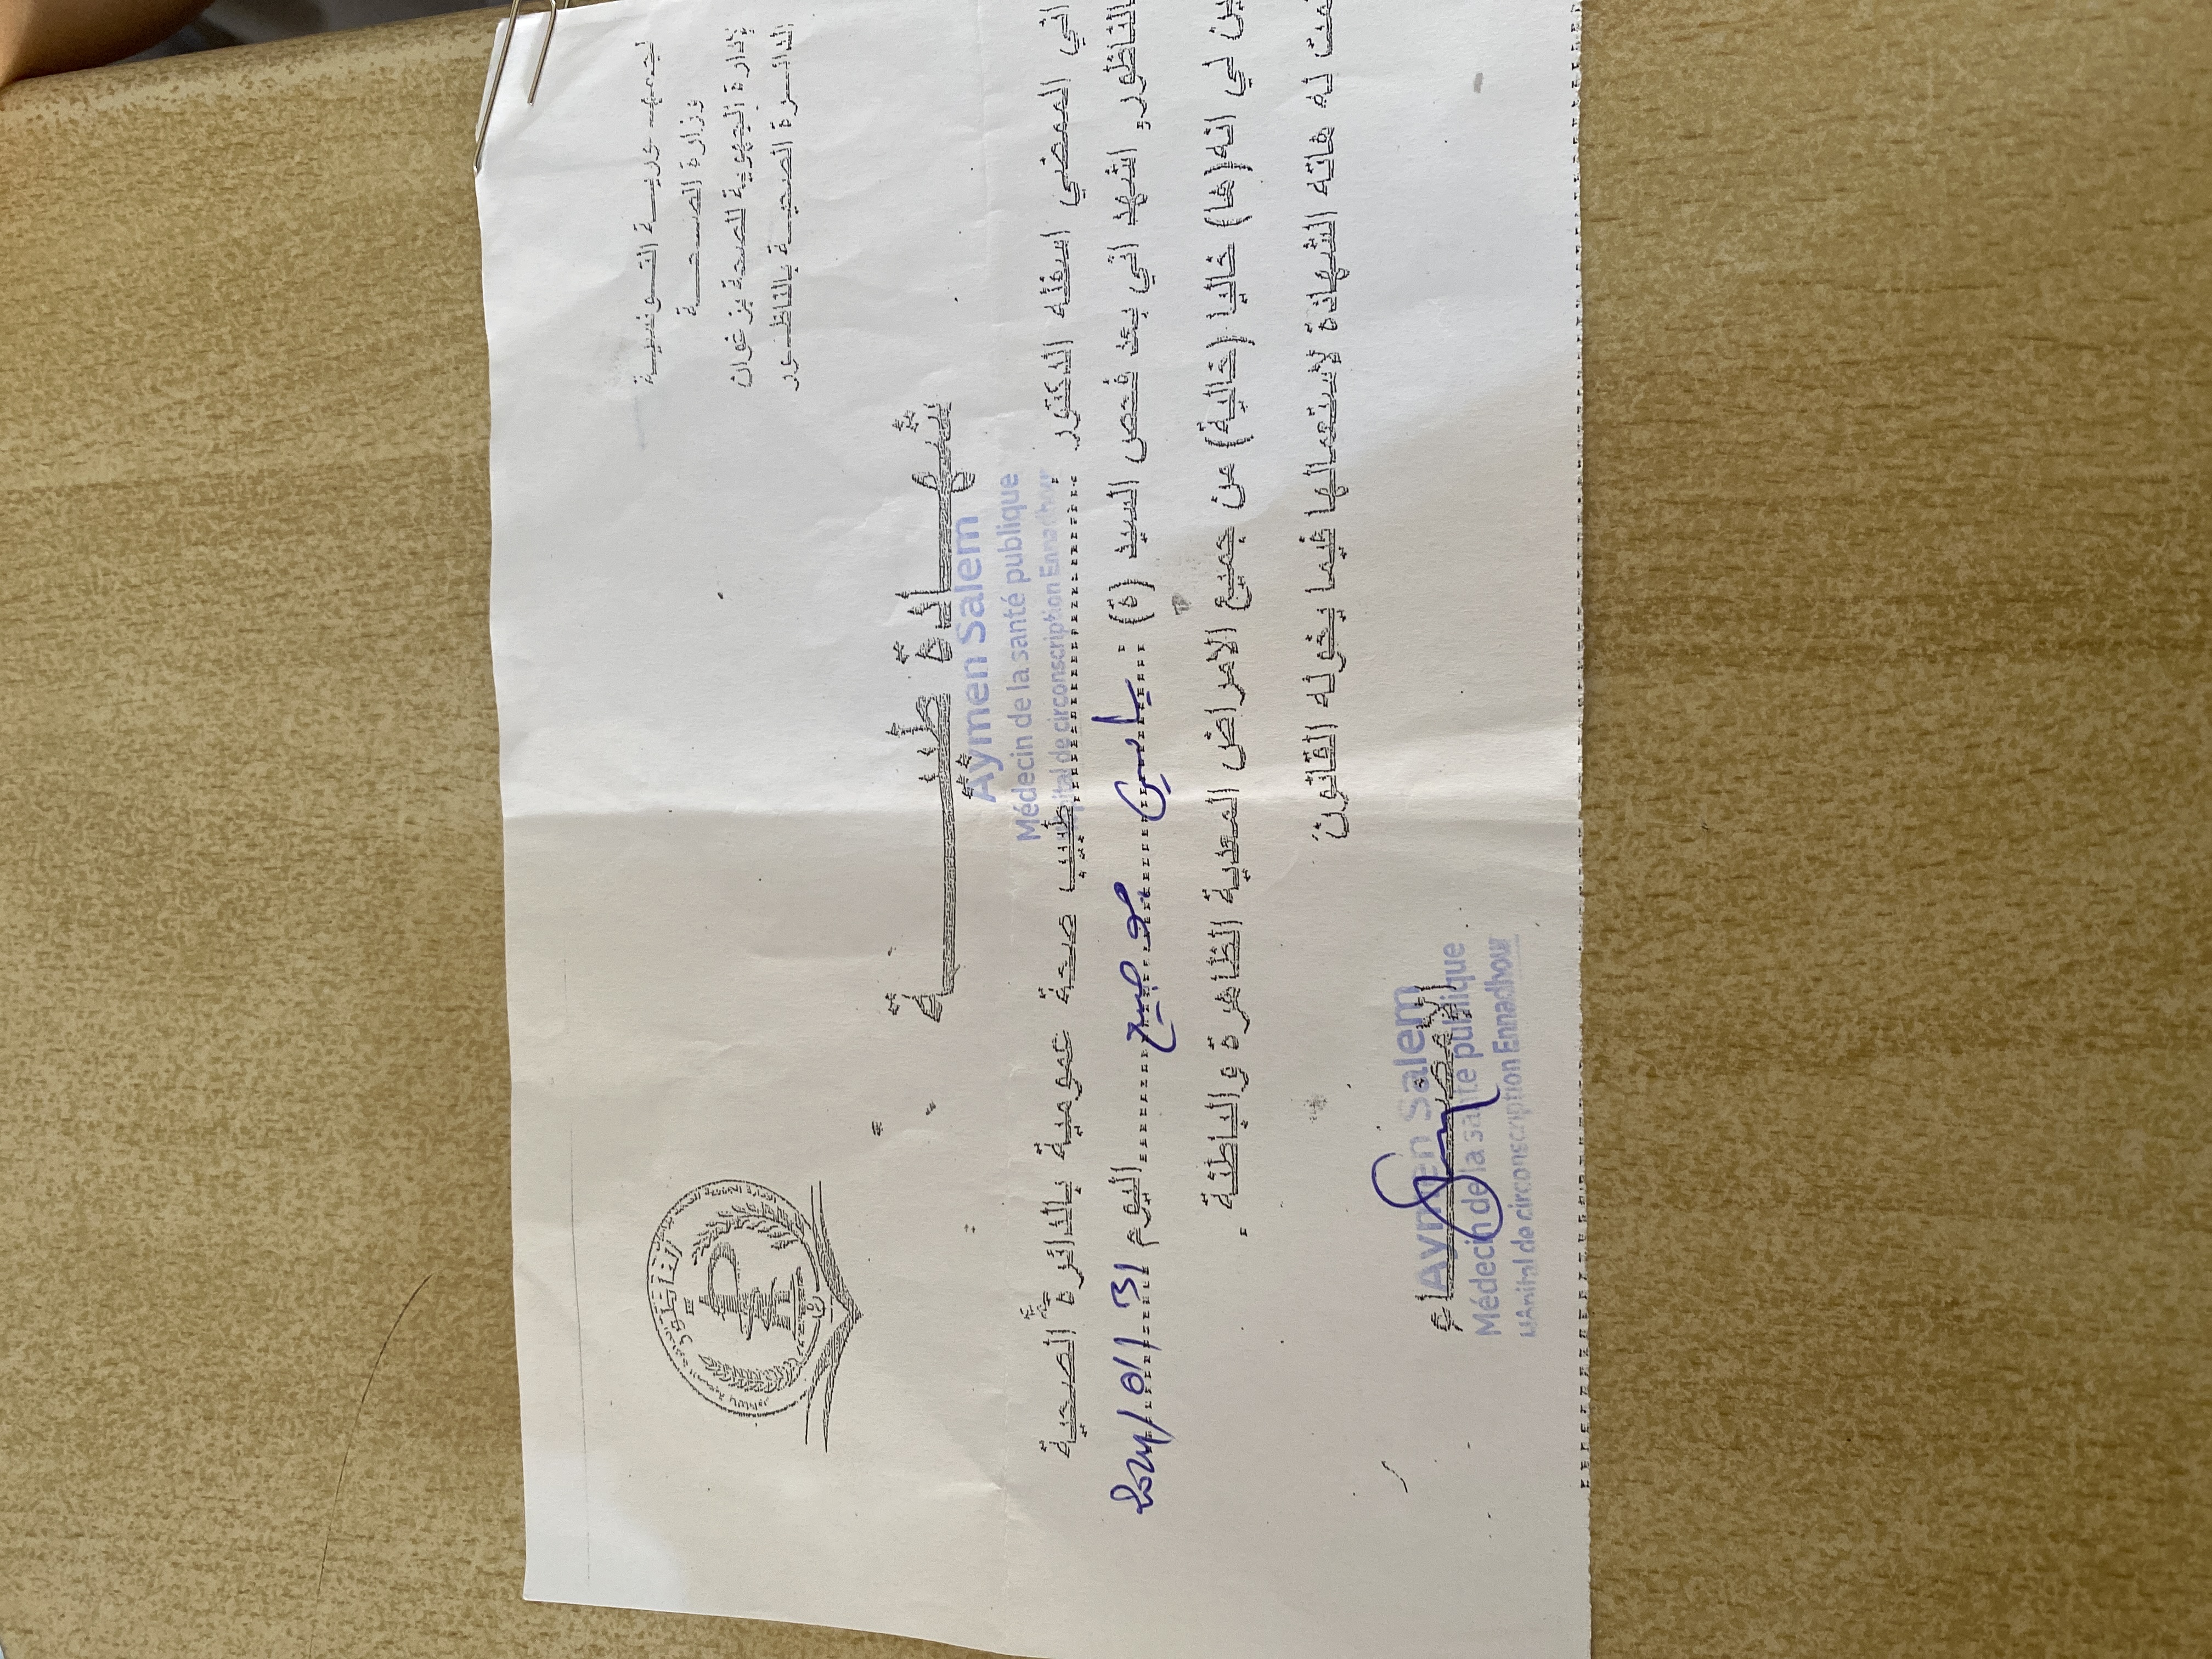 الجمهورية التونسية
وزارة الصحة
الإدارة الجهوية للصحة بزغوان
الدائرة الصحية بالناظور
شهادة طبية
Aymen Salem
Médecin de la santé publique
Hôpital de circonscription Ennadhour
اني الممضي اسفله الدكتور ........ طبيب صحة عمومية بالدائرة الصحية
بالناظور، اشهد اني بعد فحص السيد (ة) : ياسين ........ اليوم 31/01/2024
لي انه(ها) خاليا (خالية) من جميع الامراض المعدية الظاهرة والباطنة .
له هاته الشهادة لاستعمالها فيما يخوله القانون
الإمضاء
Aymen Salem
Médecin de la santé publique
Hôpital de circonscription Ennadhour